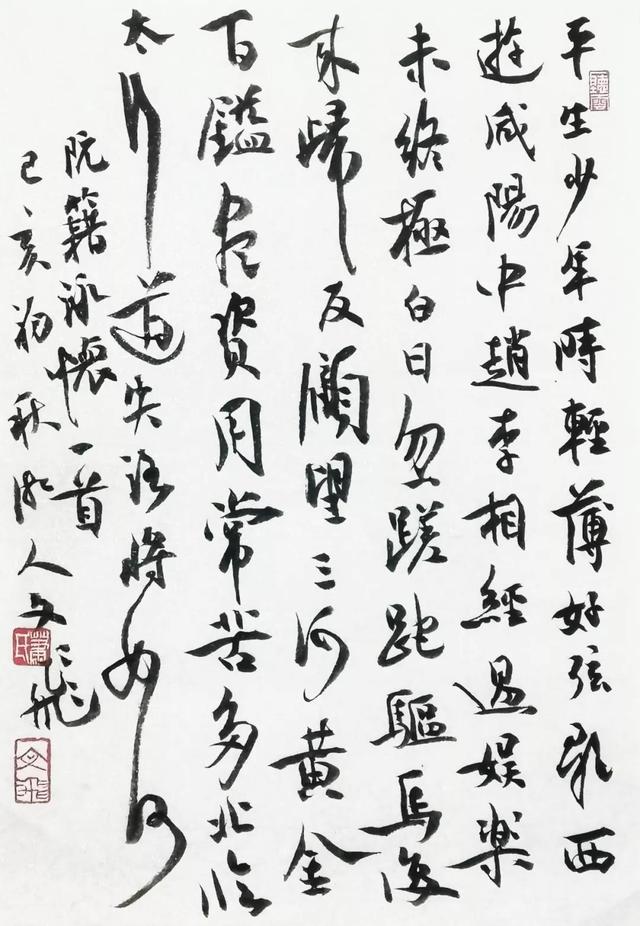 平生少年時輕薄好弦歌西
遊咸陽中趙李相經過娛樂
未終極白日忽蹉跎驅馬復
来歸反顧望三河黃金
百鎰盡資用常苦多北臨
太行道失路將如何
阮籍詠懷一首
己亥初秋湘人文飛
聽雪
蕭氏
文飛